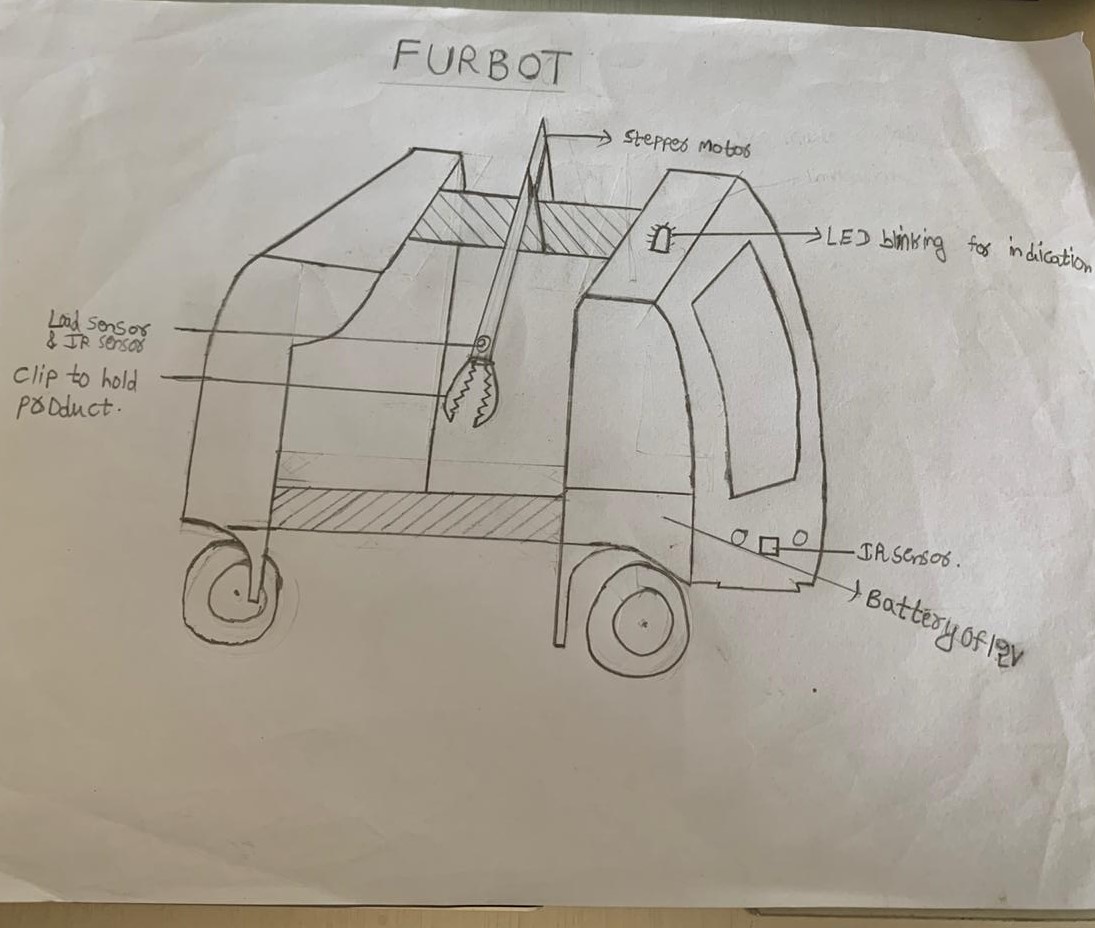 FURBOT
Stepper Motor
LED blinking for indication
Load sensor
& IR sensor
Clip to hold
product.
IR sensor.
Battery of 12V